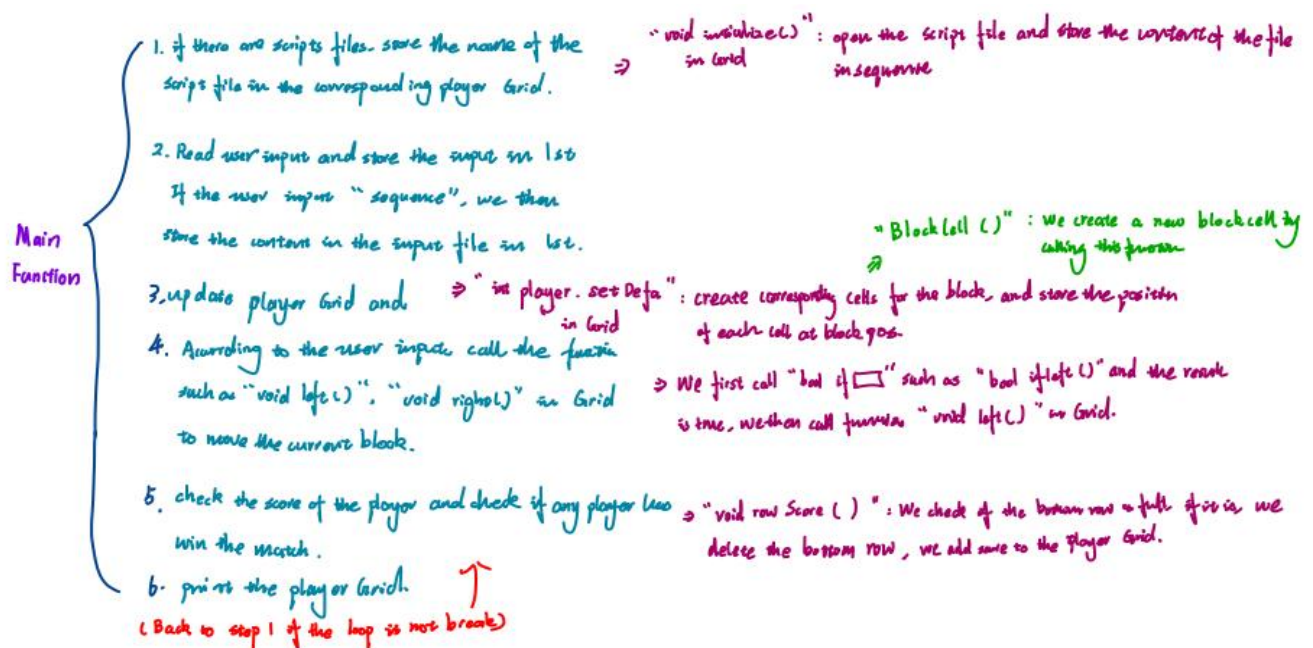 Main
Function
1. if there are scripts files. store the name of the
script file in the corresponding player Grid.
⇒ "void initialize()" : open the script file and store the content of the file
in Grid
in sequence
2. Read user input and store the input in lst
If the user input "sequence", we then
store the content in the input file in lst.
3. update player Grid and
⇒ "int player. set Defa" : create corresponding cells for the block, and store the position
in Grid
of each cell at block pos.
⇒ "BlockCell ()" : we create a new blockcell by
calling this
4. According to the user input, call the
such as "void left()", "void right()" in Grid
to move the current block.
⇒ We first call "bool if▭" such as "bool ifleft()" and the
is true, we then call "void left()" in Grid.
5. check the score of the player and check if any player has
win the match.
⇒ "void row Score ()" : We check if the bottom row is full if it is, we
delete the bottom row, we add to the Player Grid.
6. print the player Grid.
(Back to step 1 if the loop is not break)